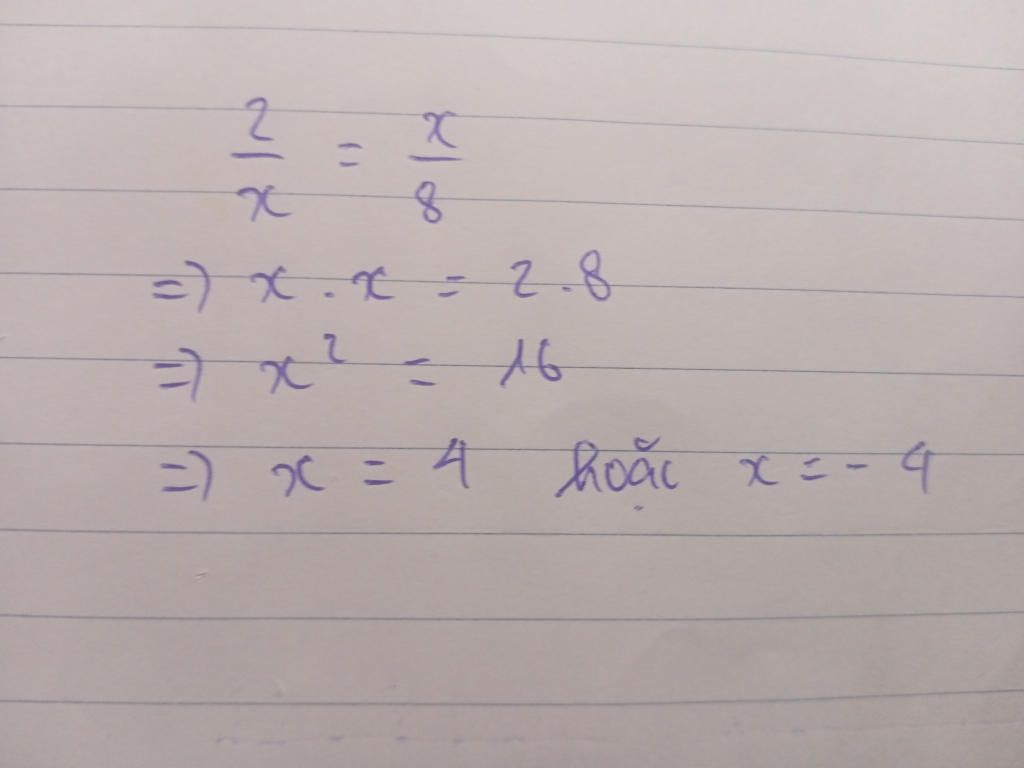 2/x = x/8
=> x . x = 2 . 8
=> x² = 16
=> x = 4 hoặc x = - 4